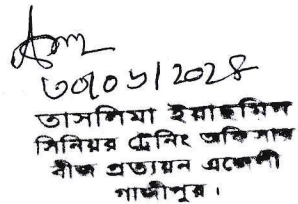 তাসলিমা ইয়াছমিন
সিনিয়র ট্রেনিং অফিসার
বীজ প্রত্যয়ন এজেন্সী
গাজীপুর।